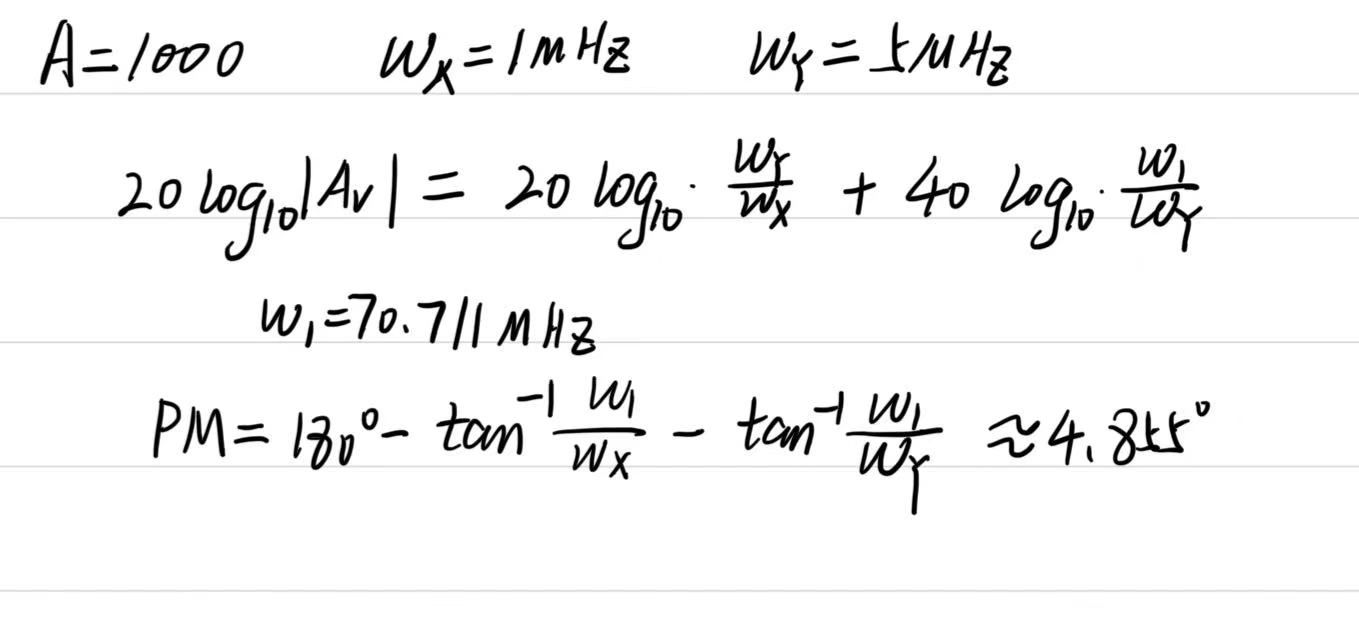 A=1000 Wx=1MHz WY=5MHz
20 log10|Av| = 20 log10· WY/Wx + 40 log10· W1/WY
W1=70.711MHz
PM=180°- tan⁻¹ W1/Wx - tan⁻¹ W1/WY ≈4.855°